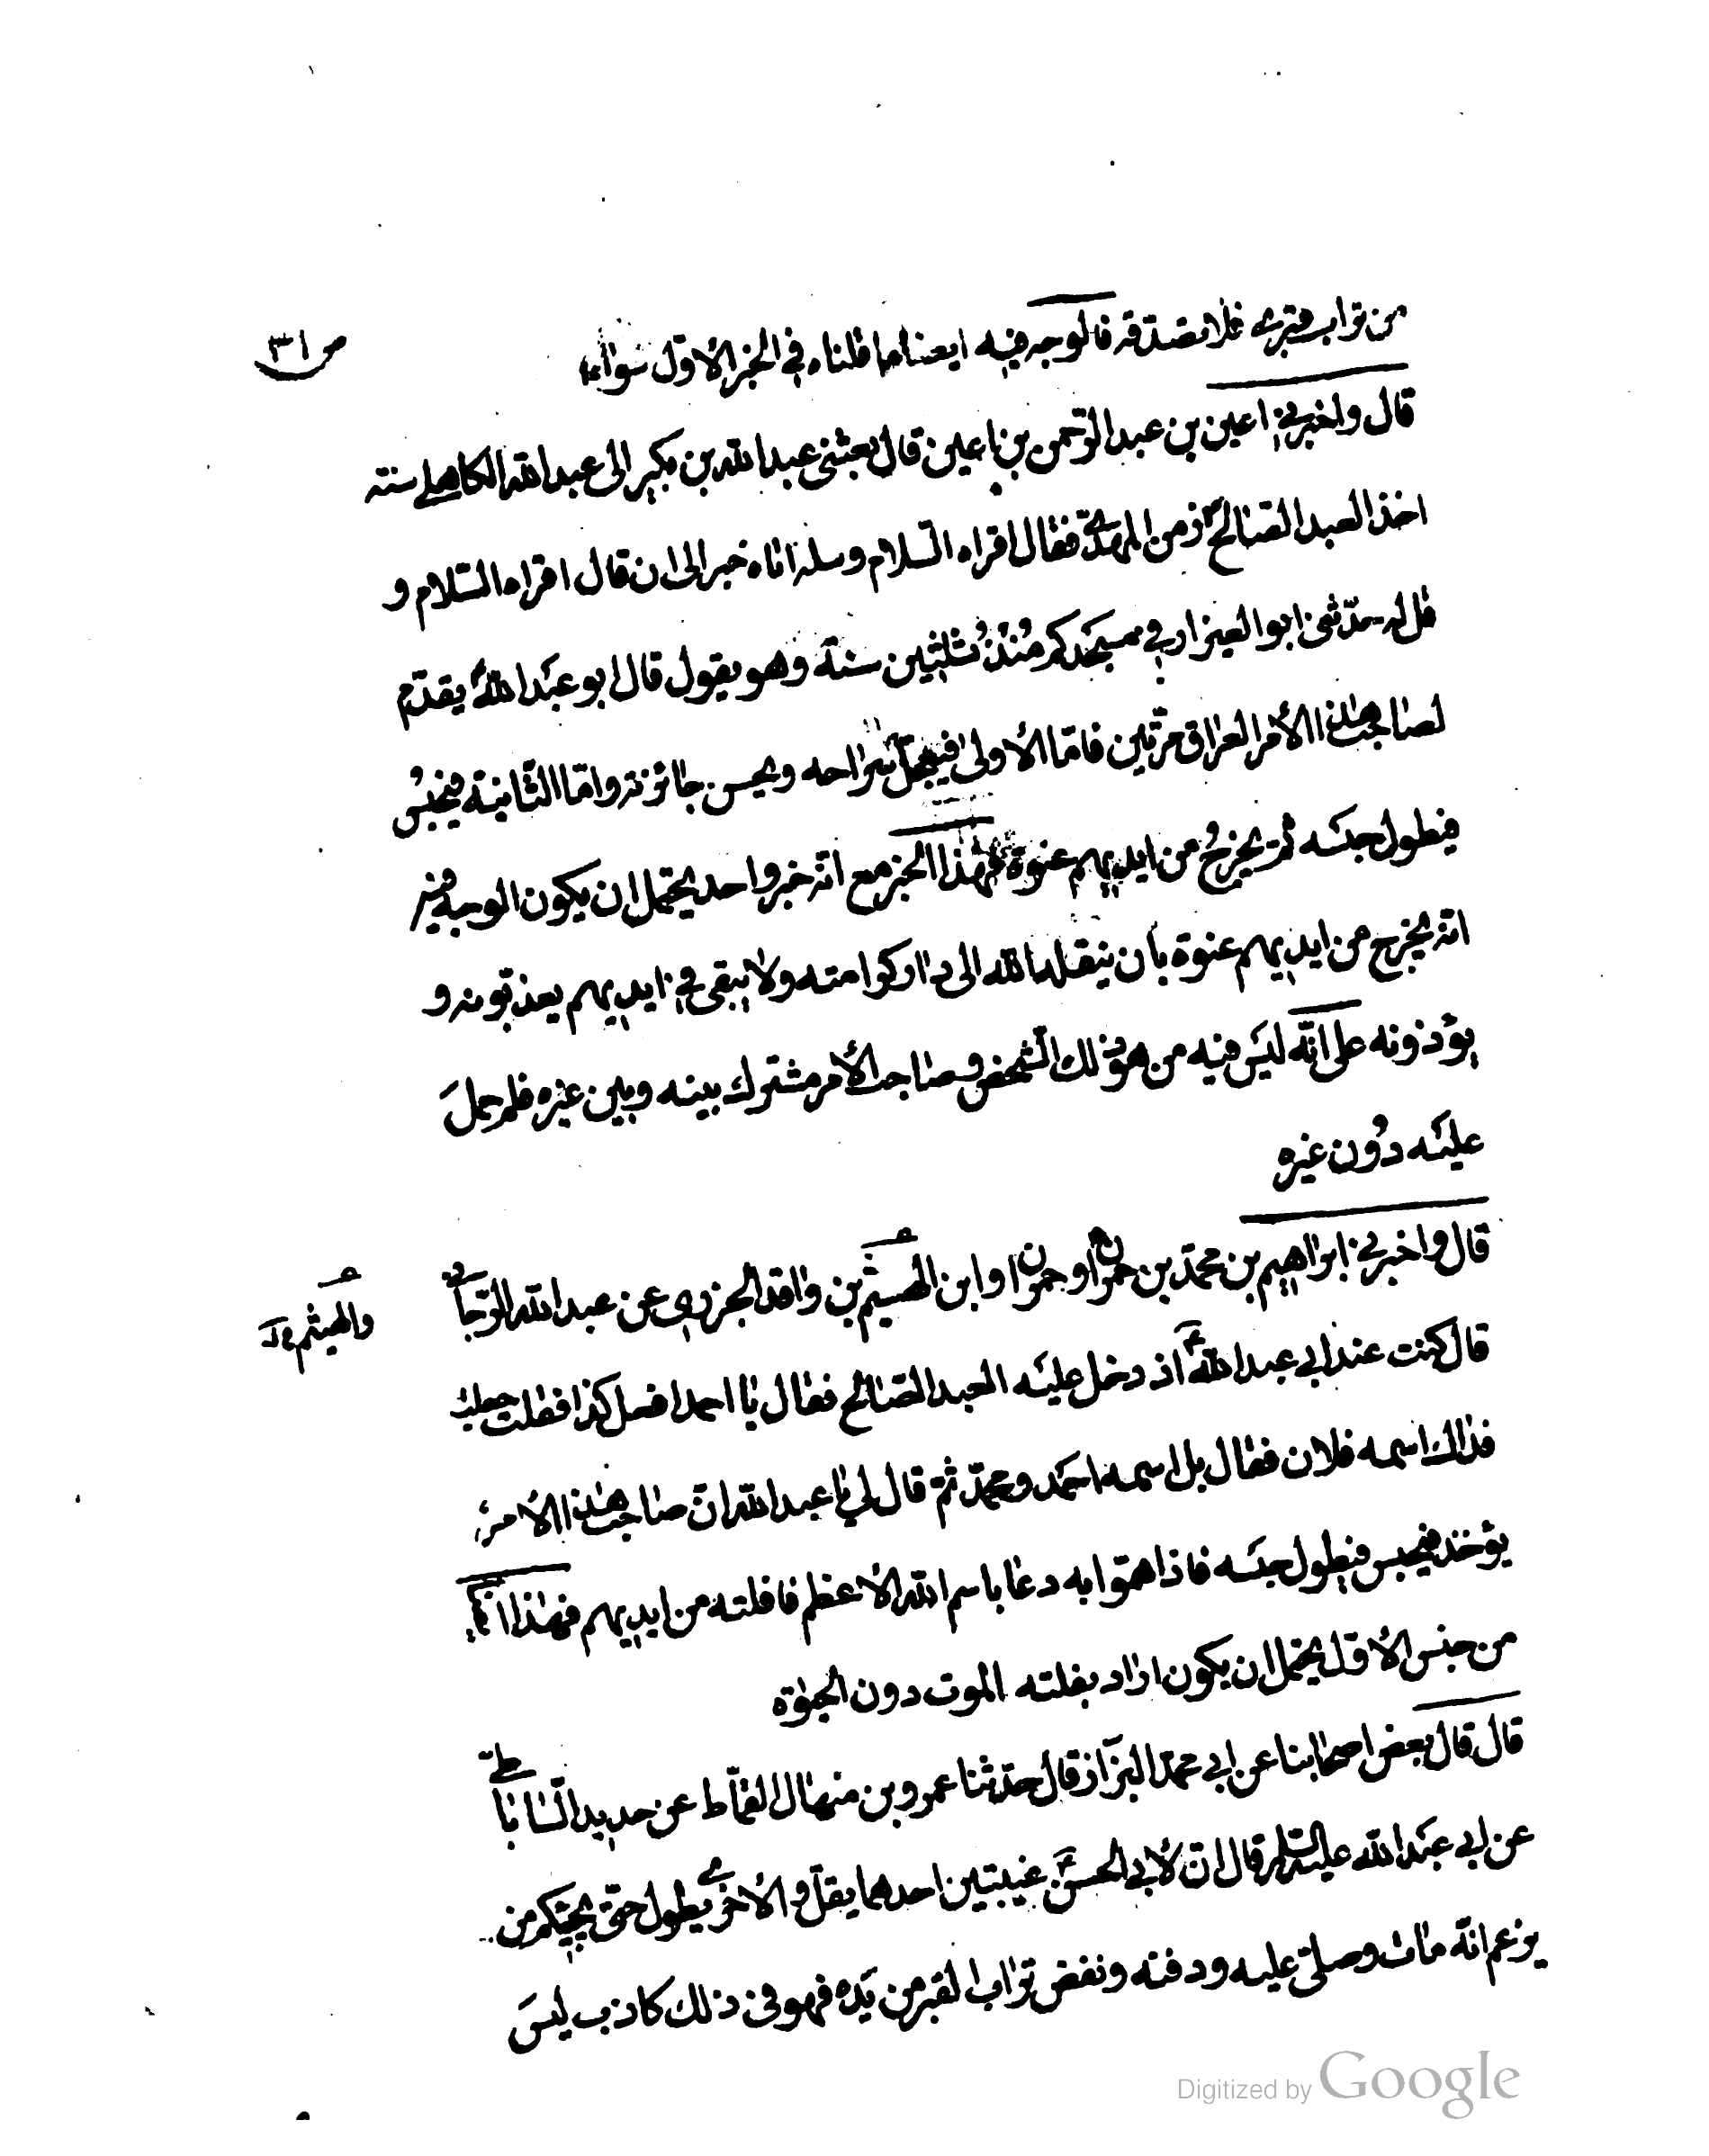 من تراب قبره فلا تصدقه فالوجه فيه ايضا ما قلناه في الخبر الاوّل سواء
ص ٣١
قال واخبرني اعين بن عبد الرّحمن بن اعين قال بعثنى عبد الله بن بكير الى عبد الله الكاهلي سنته
اخذ العبد الصّالح ع زمن المهدىّ فقال اقراه السّلام وسله اتاه خبر الى ان قال اقراه السّلام و
قل له حدّثنى ابو العيزار في مسجدكم مُنذُ ثلثين سنة وهو يقول قال ابو عبد الله ع يقدم
لصاحب هذا الأمر العراق مرّتين فامّا الأولى فيعجل سراحه ويحسن جائزته وامّا الثّانية فيحبسُ
فيطول حبسه ثم يخرجُ من ايديهم عنوة فهذا الخبر مع انّه خبر واحد يحتمل ان يكون الوجه فيه
انّه يخرج من ايديهم عنوة بأن ينقله الله الى دار كرامته ولا يبقى في ايديهم يعذّبونه و
يؤذونه على انّه ليس فيه من هو ذلك الشّخص وصاحب الأمر مشترك بينه وبين غيره فلم حمل
عليه دُون غيره
قال واخبرني ابراهيم بن محمّد بن حمران وحمران او ابن الهيثم بن واقد الجزري عن عبد الله الرّجاني
والهيثم
قال كنت عند ابي عبد الله ع اذ دخل عليه العبد الصّالح فقال يا احمد افعل كذا فقلت جعلت
فداك اسمه فلان فقال بل اسمه احمد ومحمّد ثم قال لي يا عبد الله انّ صاحب هذا الأمر
يؤخذ فيحبس فيطول حبسه فاذا همّوا به دعا باسم الله الاعظم فافلته من ايديهم فهذا
من جنس الأوّل يحتمل ان يكون اراد بفلته الموت دون الحيوة
قال قال بعض اصحابنا عن ابي محمّد البزّاز قال حدّثنا عمرو بن منهال القمّاط عن حديد السّاباطي
عن ابي عبد الله عليه السلم قال انّ لأبي الحسن ع غيبتين احدهما يقلّ والأخرى يطول حتّى يجيئكم من
يزعم انّه مات وصلّى عليه ودفنه ونفض تراب القبر من يده فهو في ذلك كاذب ليسَ
Digitized by Google